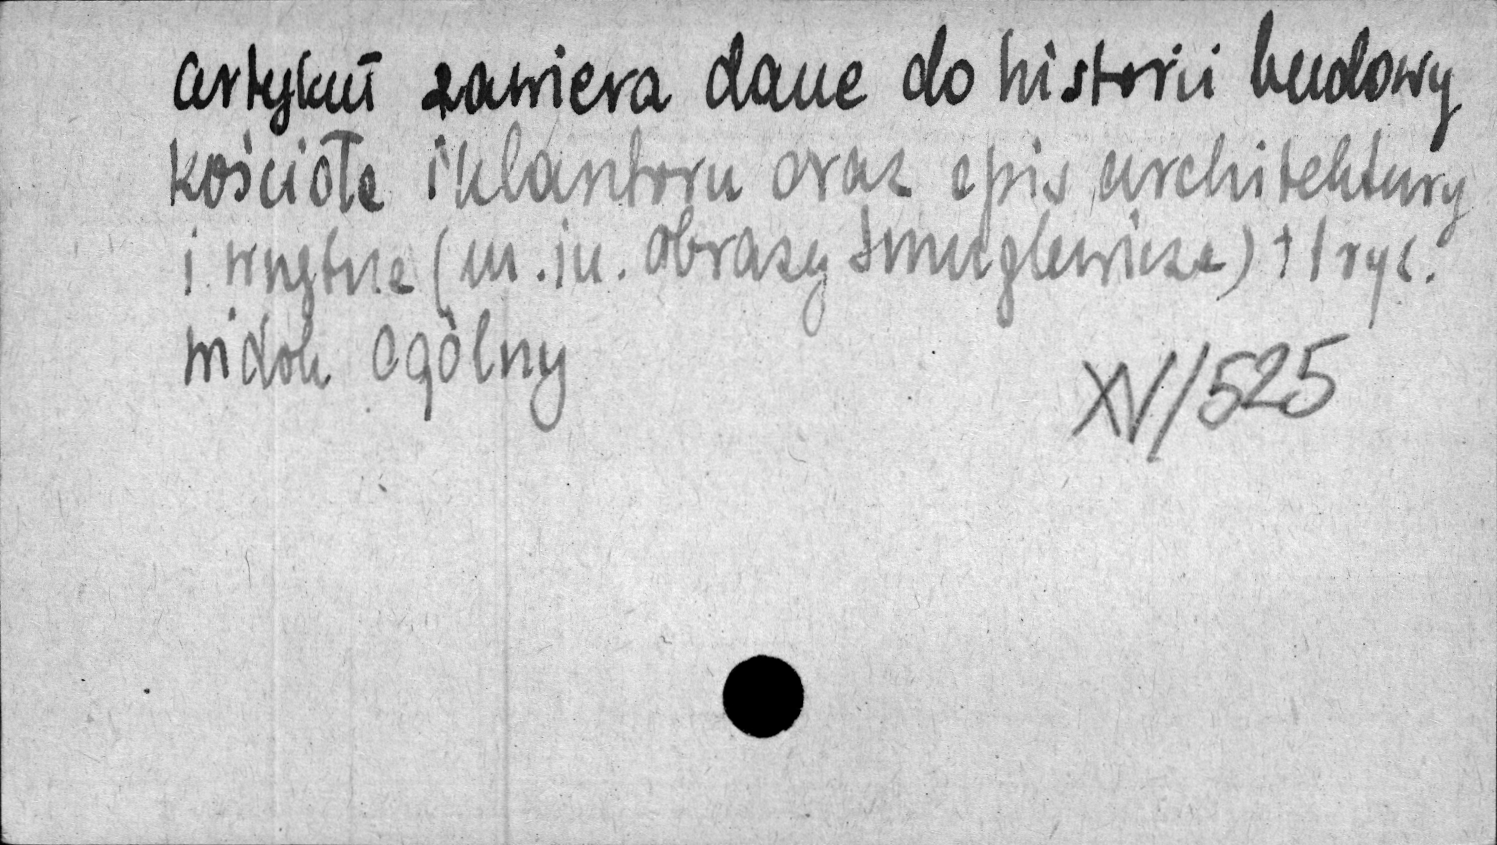 Artykuł zawiera dane do historii budowy
kościoła i klasztoru oraz opis architektury
i wnętrza (m.in. obrazy Smuglewicza) + 1 ryc.
widok ogólny
XV/525